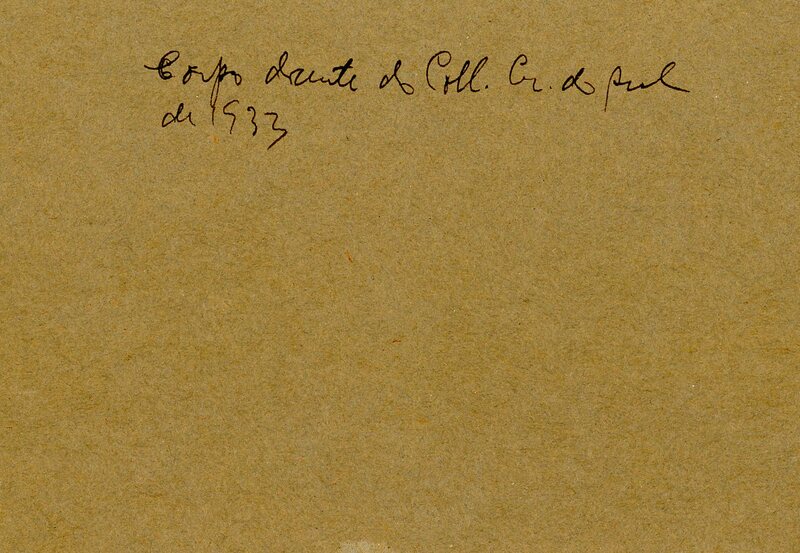 Corpo docente do Coll. Cr. do Sul
de 1933